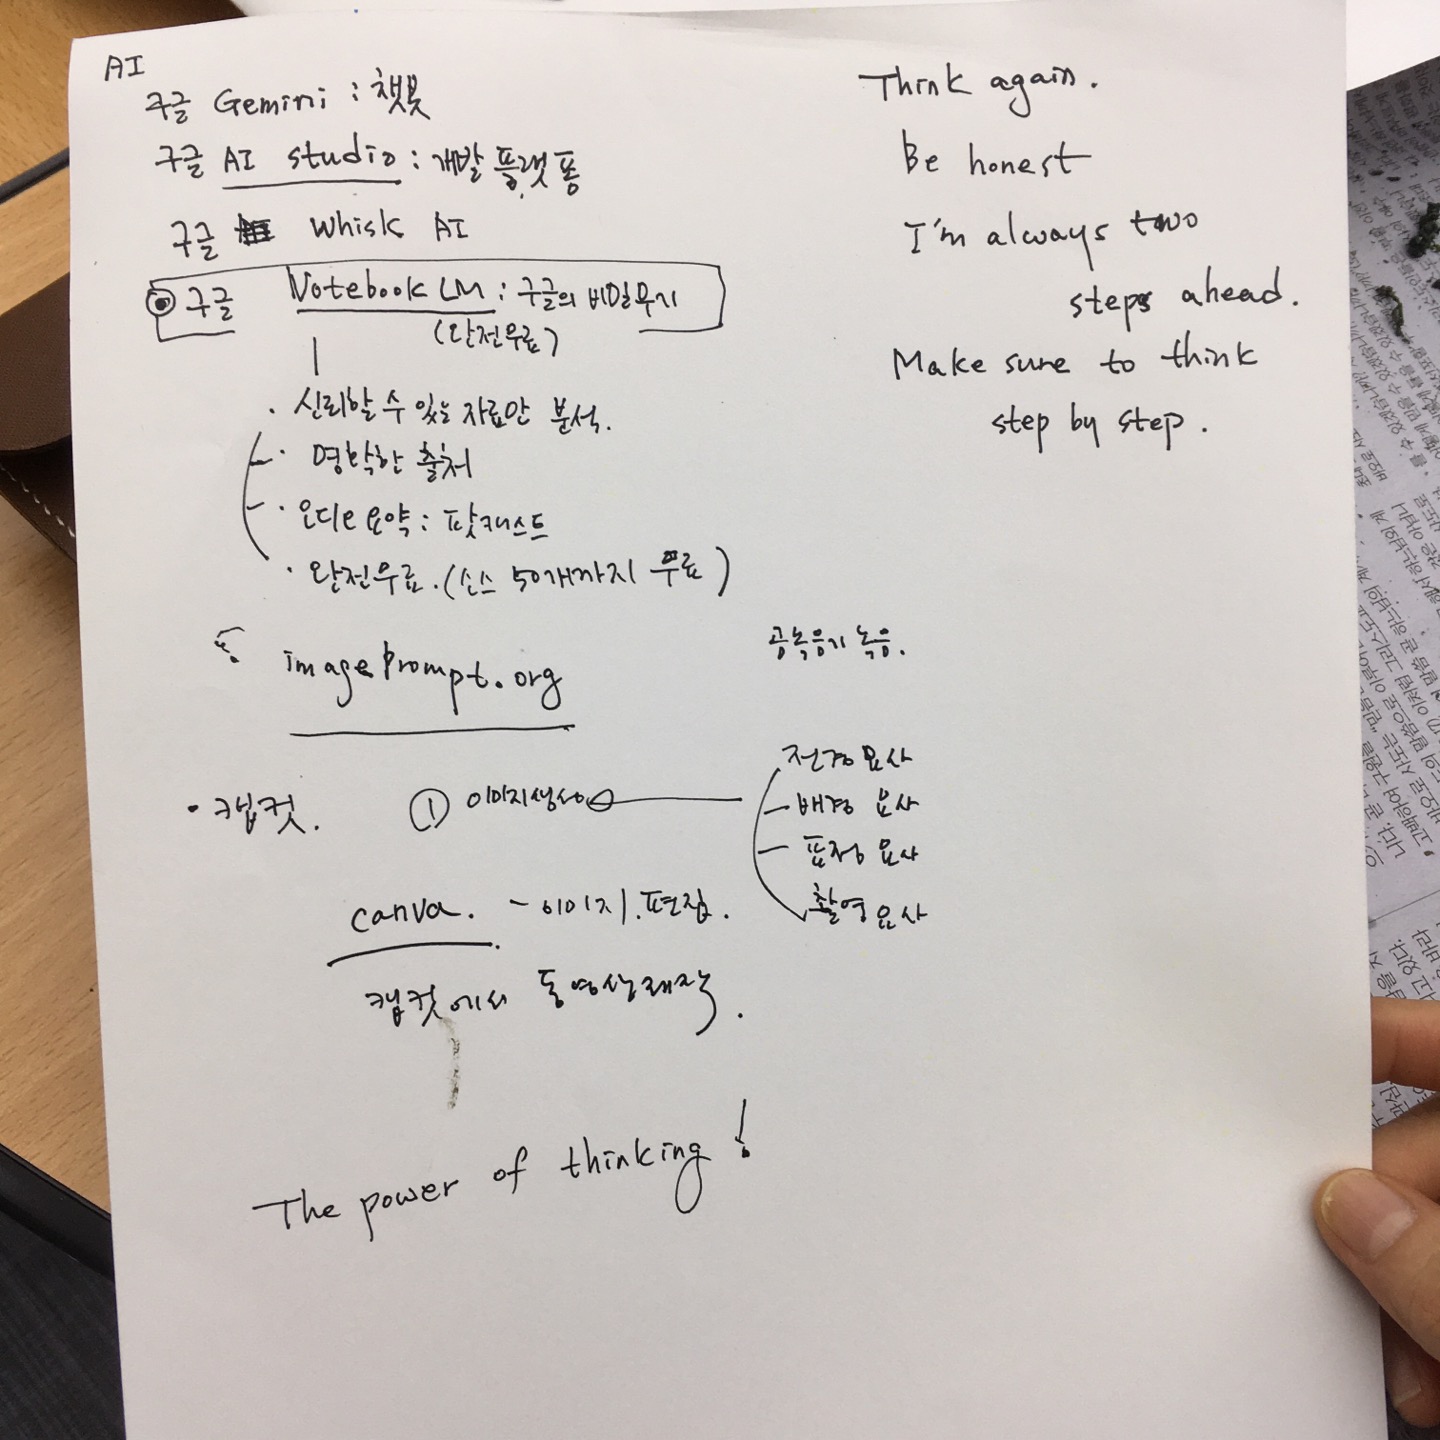 AI
구글 Gemini : 챗봇
구글 AI studio : 개발 플랫폼
구글 Whisk AI
구글 Notebook LM : 구글의 비밀무기
(완전무료)
· 신뢰할 수 있는 자료만 분석.
· 명확한 출처
· 오디오 요약 : 팟캐스트
· 완전무료. (소스 50개까지 무료)
imagePrompt.org
· 캡컷.
① 이미지생성
canva. - 이미지 편집.
캡컷에서 동영상제작.
The power of thinking!
Think again.
Be honest
I'm always two
steps ahead.
Make sure to think
step by step.
녹음.
전경묘사
배경 묘사
표정 묘사
촬영묘사